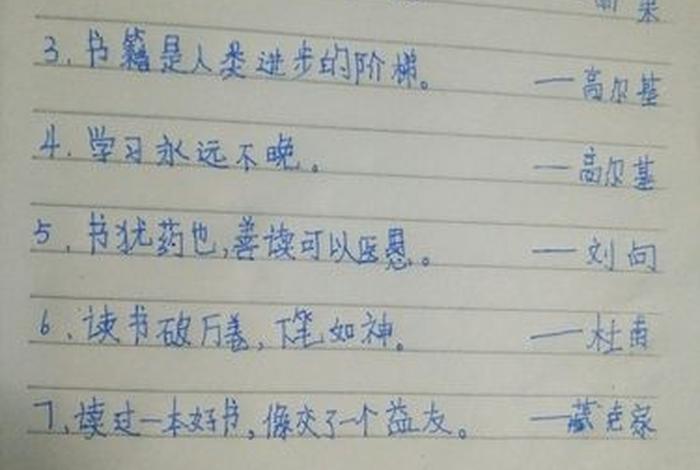 3.书籍是人类进步的阶梯。 ——高尔基
4.学习永远不晚。 ——高尔基
5.书犹药也,善读可以医愚。 ——刘向
6、读书破万善,下笔如神。 ——杜甫
7、读过一本好书,像交了一个益友。 ——藏克家